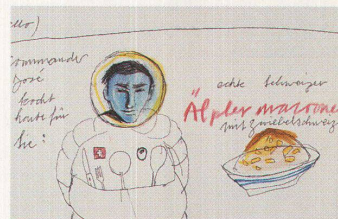 ello)
Commander
José
kocht
heute für
Sie:
echte Schweizer
"Älpler
mit Zwiebelschweiz